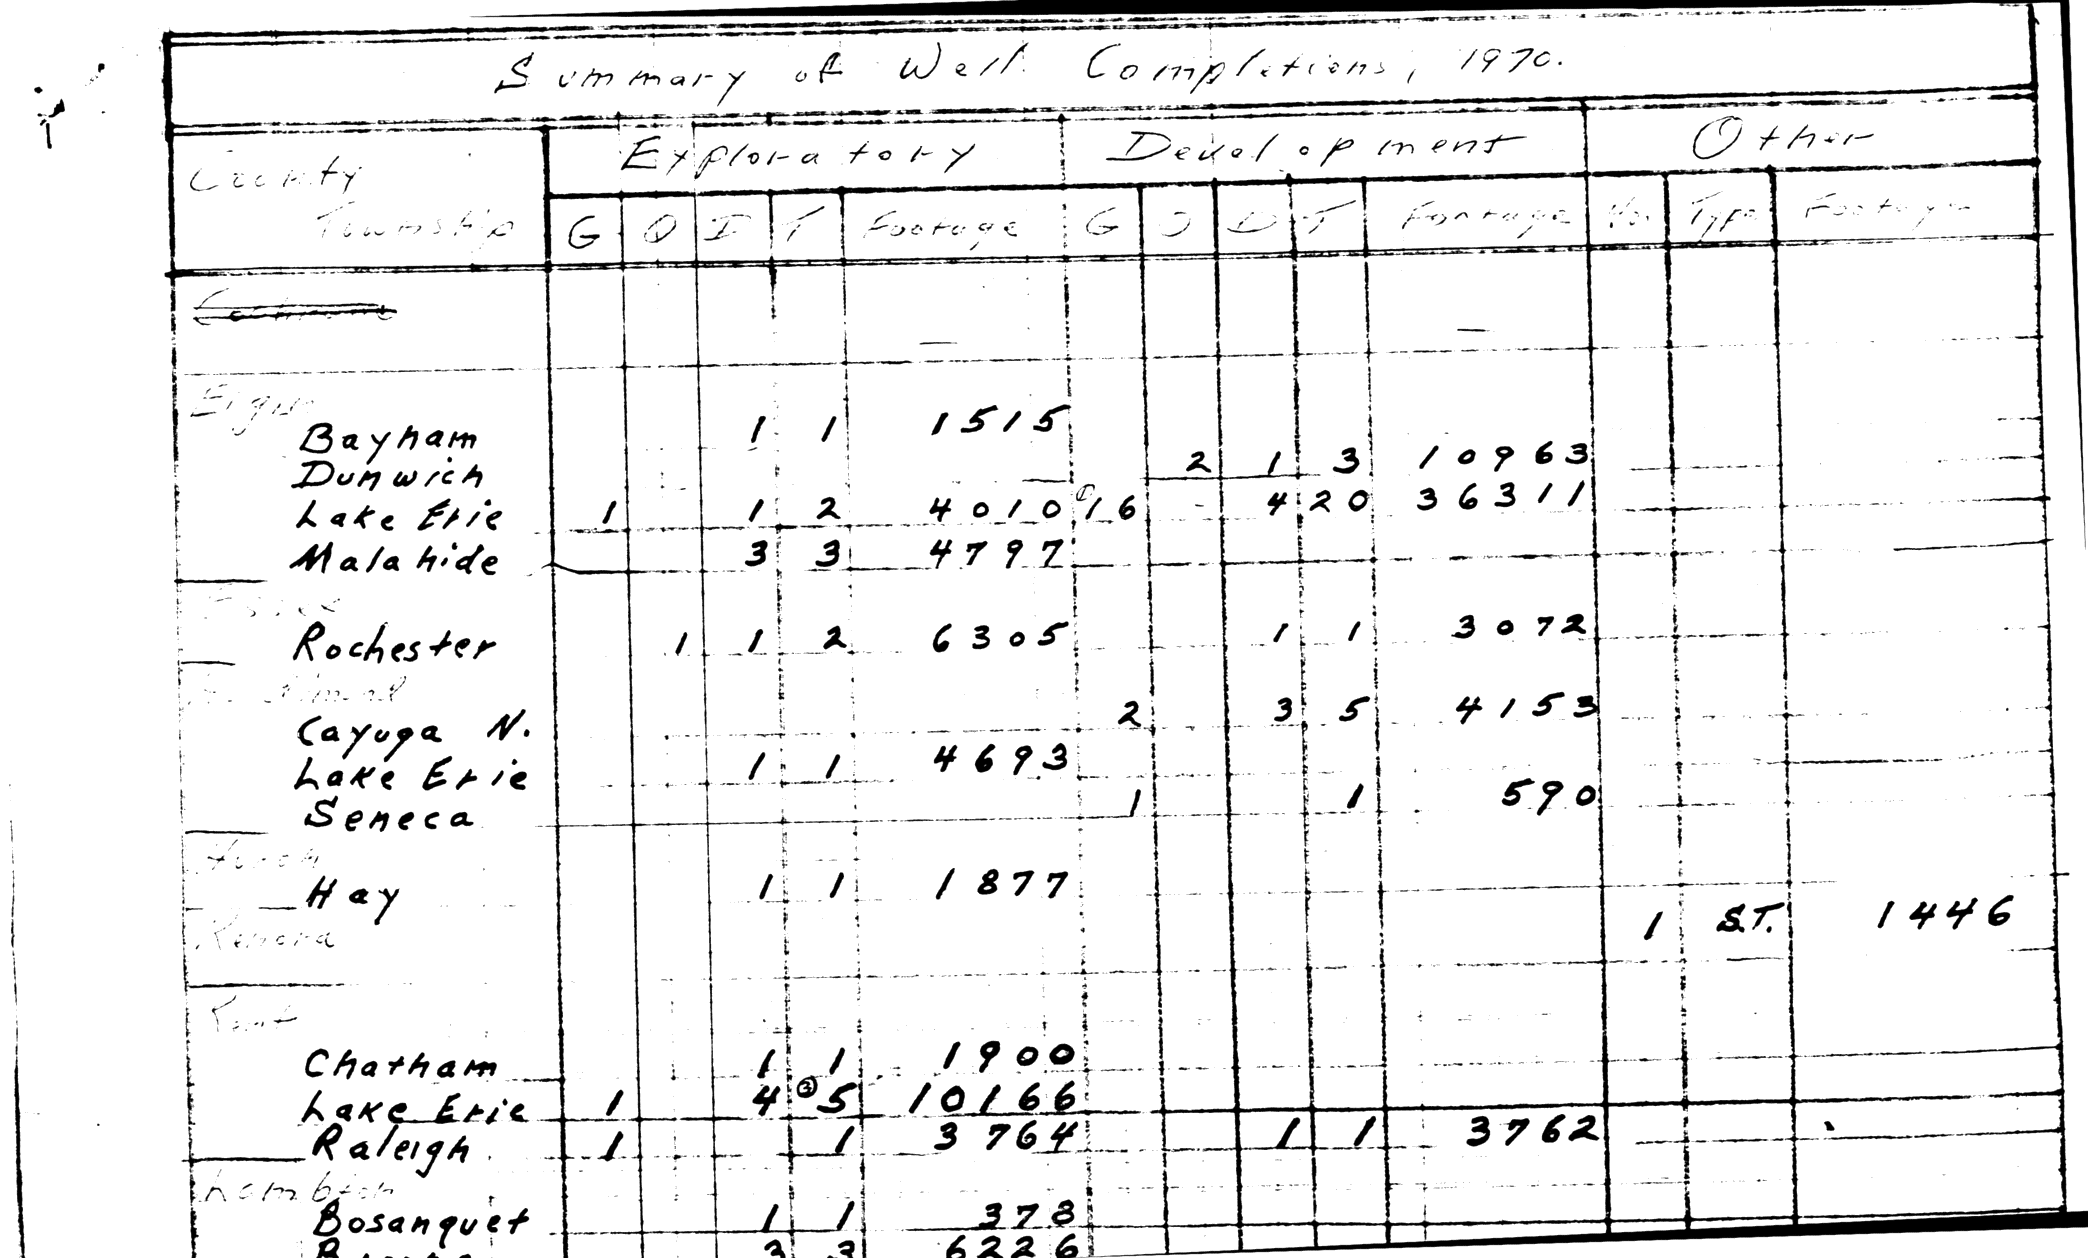 Summary of Well Completions, 1970.
County Exploratory Development Other
Township G O D T Footage G O D T Footage No. Type Footage
— —
Elgin
Bayham 1 1 1515
Dunwich 2 1 3 10963
Lake Erie 1 1 2 4010 16 4 20 36311
Malahide 3 3 4797
Essex
Rochester 1 1 2 6305 1 1 3072
Cayuga N. 2 3 5 4153
Lake Erie 1 1 4693
Seneca 1 1 590
Huron
Hay 1 1 1877
Kenora 1 S.T. 1446
Kent
Chatham 1 1 1900
Lake Erie 1 4 ③ 5 10166
Raleigh 1 1 3764 1 1 3762
Lambton
Bosanquet 1 1 378
3 3 6226